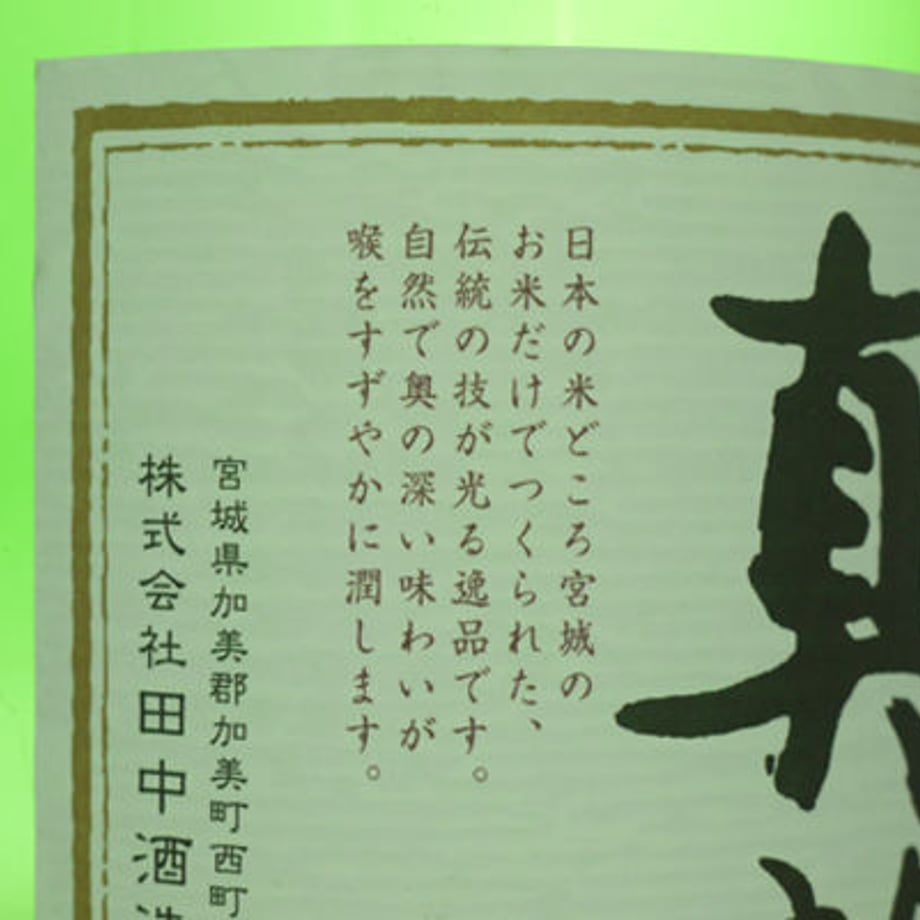 真
日本の米どころ宮城の
お米だけでつくられた、
伝統の技が光る逸品です。
自然で奥の深い味わいが
喉をすずやかに潤します。
宮城県加美郡加美町西町
株式会社田中酒